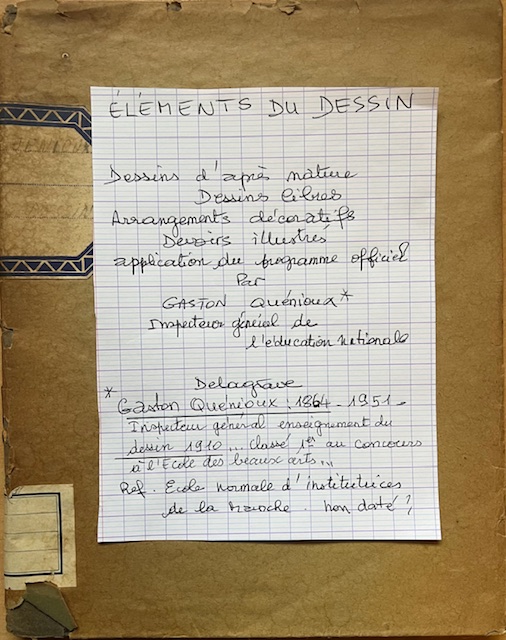 ÉLÉMENTS DU DESSIN
Dessins d'après nature
Dessins libres
Arrangements décoratifs
Devoirs illustrés
application du programme officiel
Par
GASTON Quénioux*
Inspecteur général de
l'éducation nationale
Delagrave
* Gaston Quénioux : 1864 - 1951 -
Inspecteur général enseignement du
dessin 1910 ... Classé 1er au concours
à l'Ecole des beaux arts...
Ref. Ecole normale d'institutrices
de la . non daté ?